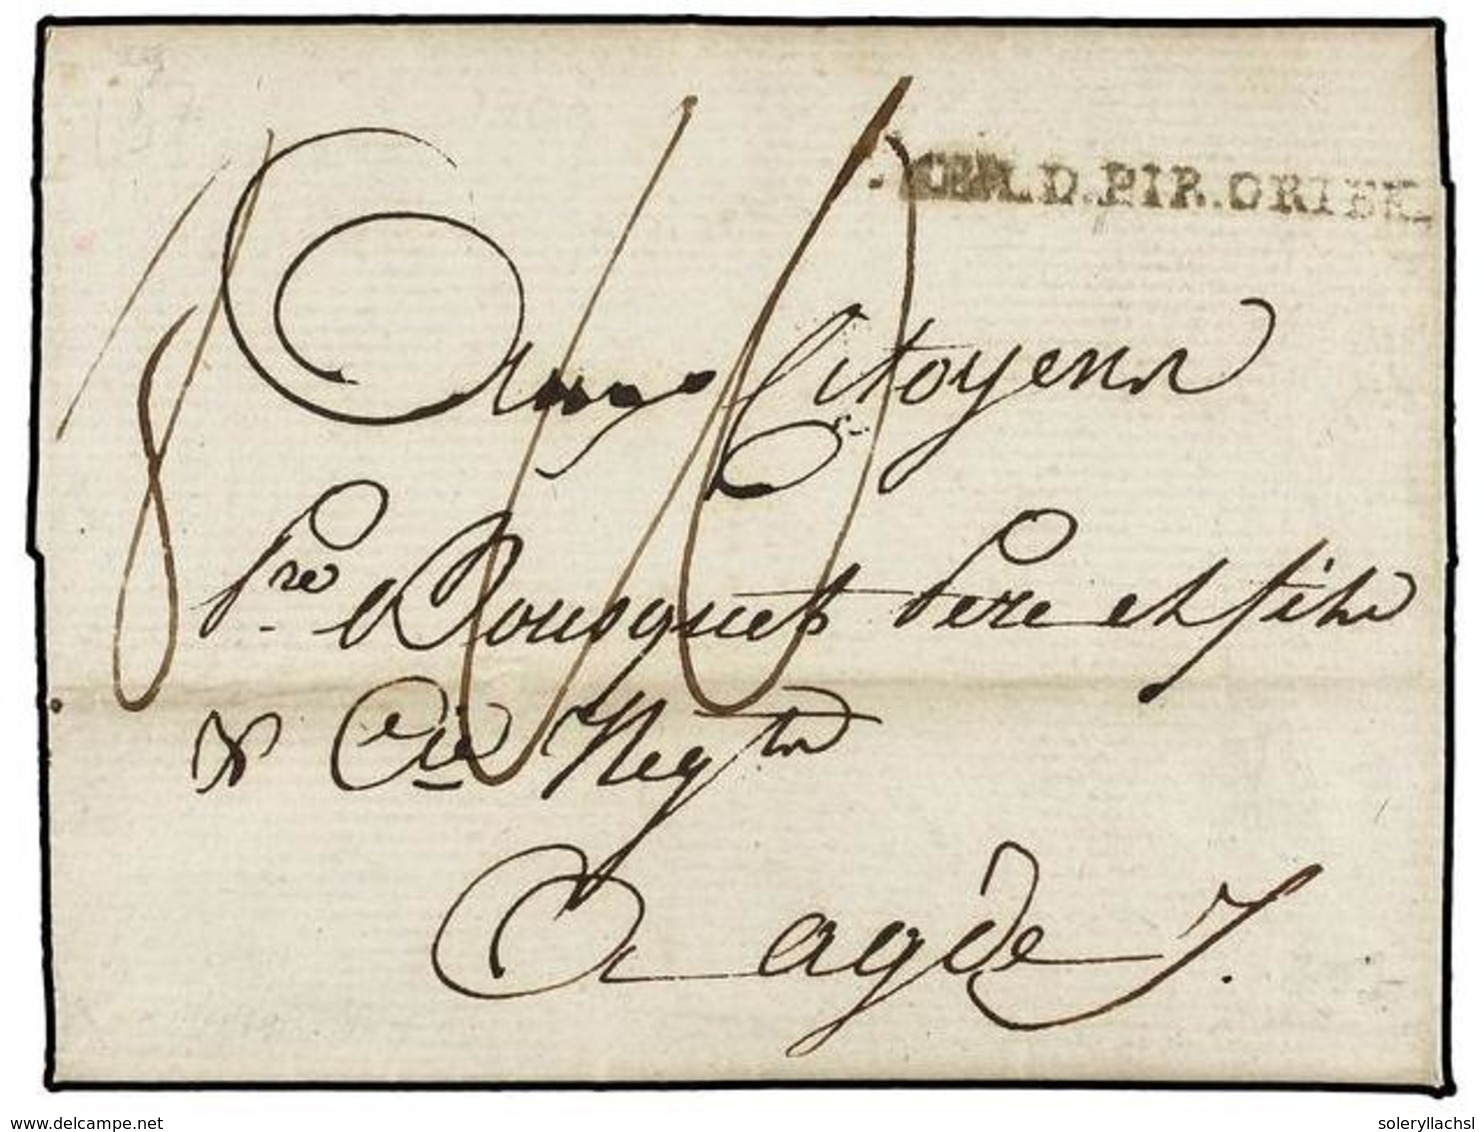 L.D.PIR.ORIEN.
Aux Citoyens
Pre Bousquet Pere et fils
& Cie Negts
A agde
www.delcampe.net
soleryllachsl